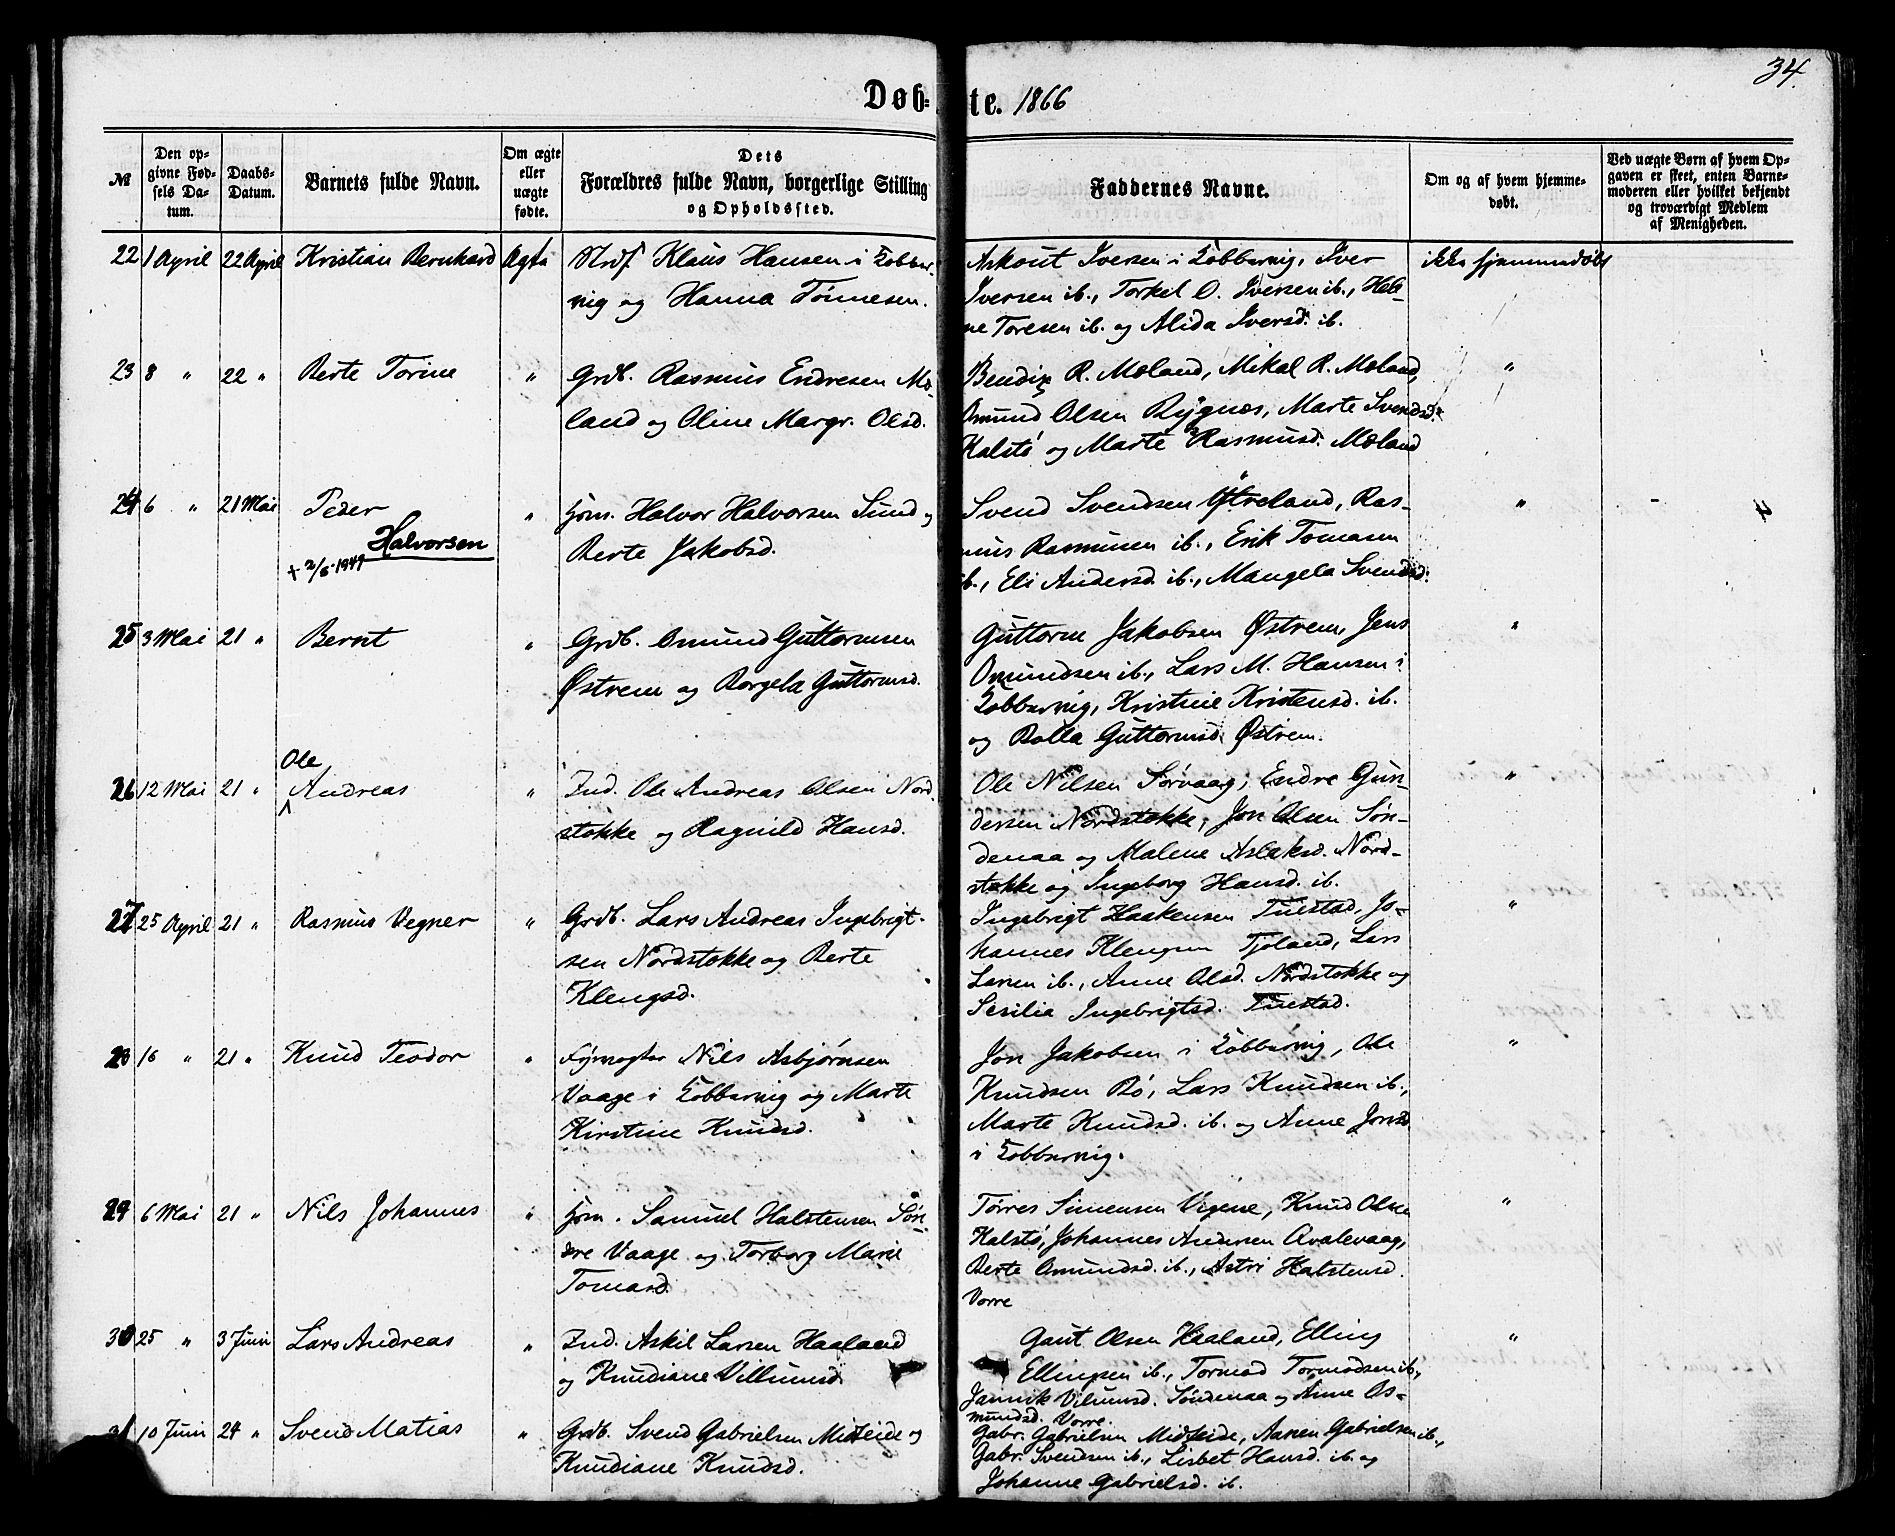 34.
Døb-te. 1866
№
Den op-
givne Fød-
sels Da-
tum.
Daabs-
Datum.
Barnets fulde Navn.
Om ægte
eller
uægte
fødte.
Dets
Forældres fulde Navn, borgerlige Stilling
og Opholdssted.
Faddernes Navne.
Om og af hvem hjemme-
døbt.
Ved uægte Børn af hvem Op-
gaven er skeet, enten Barne-
moderen eller hvilket bekjendt
og troværdigt Medlem
af Menigheden.
22 1 April 22 April Kristian Bernhard Ægte
Klaus Hansen i Kobber-
vig og Hanna Tønnesen.
Askout Iversen i Kobbervig, Iver
Iversen ib., Torkel O. Iversen ib., Hele-
ne Toresen ib. og Alida Iversd. ib.
ikke hjemmedøbt
23 8 " 22 " Berte Torine "
Grdb. Rasmus Endresen Mæ-
land og Oline Margr. Olsd.
Bendix R. Mæland, Mikal R. Mæland,
Omund Olsen Rygnæs, Marte Svendsd.
Kalstø og Marte Rasmusd. Mæland
"
24 6 " 21 Mai Peder
Halvorsen
+ 2/6-1949
"
Hsm. Halvor Halvorsen Sund og
Berte Jakobsd.
Svend Svendsen Østreland, Ras-
mus Rasmusen ib., Erik Tomasen
ib., Eli Andersd. ib., Mangela Svendsd.
" - 4
25 3 Mai 21 " Bernt "
Grdb. Omund Guttormsen
Østrem og Borgela Guttormsd.
Guttorm Jakobsen Østrem, Jens
Omundsen ib., Lars M. Hansen i
Kobbervig, Kristine Kristensd. ib.
og Bolla Guttormsd. Østrem.
"
26 12 Mai 21 " Ole
Andreas "
Ind. Ole Andreas Olsen Nord-
stokke og Ragnild Hansd.
Ole Nilsen Sørvaag, Endre Gun-
dersen Nordstokke, Jon Olsen Søn-
denaa og Malene Aslaksd. Nord-
stokke og Ingeborg Hansd. ib.
"
27 25 April 21 " Rasmus Vegner "
Grdb. Lars Andreas Ingebrigt-
sen Nordstokke og Berte
Klengsd.
Ingebrigt Haakensen Tuestad, Jo-
hannes Klengsen Tjøland, Lars
Larsen ib., Anne Olsd. Nordstokke og
Sesilia Ingebrigtsd. Tuestad.
"
28 16 " 21 " Knud Teodor "
Fyrvogter Nils Asbjørnsen
Vaage i Kobbervig og Marte
Kirstine Knudsd.
Jon Jakobsen i Kobbervig, Ole
Knudsen Bø, Lars Knudsen ib.,
Marte Knudsd. ib. og Anne Jonsd.
i Kobbervig.
"
29 6 Mai 21 " Nils Johannes "
Hsm. Samuel Halstensen Søn-
dre Vaage og Torborg Marie
Tomasd.
Tørres Simensen Vigene, Knud Olsen
Kalstø, Johannes Andersen Kvalevaag,
Berte Omundsd. ib., Astri Halstensd.
Vorre
"
30 25 " 3 Juni Lars Andreas "
Ind. Askil Larsen Haaland
og Knudiane Villumsd.
Gaut Olsen Haaland, Elling
Ellingsen ib., Tormod Tormodsen ib.,
Jannik Vilumsd. Søndenaa og Anne Os-
mundsd. Vorre.
"
31 10 Juni 24 " Svend Matias "
Grdb. Svend Gabrielsen Midteide og
Knudiane Knudsd.
Gabr. Gabrielsen Midteide, Aanen Gabrielsen ib.,
Gabr. Svendsen ib., Lisbet Hansd. ib. og
Johanne Gabrielsd. ib.